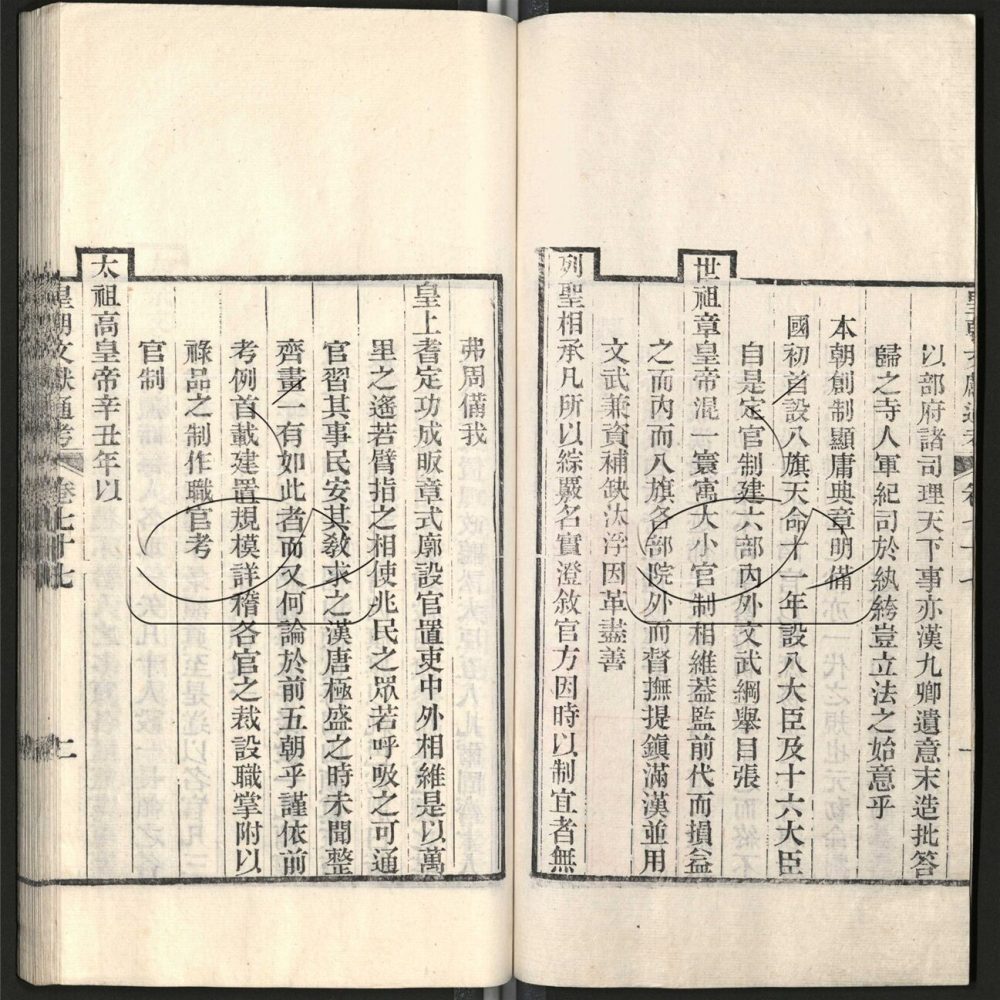 以部府諸司理天下事亦漢九卿遺意末造批答
歸之寺人軍紀司於紈絝豈立法之始意乎
本朝創制顯庸典章明備
國初首設八旗天命十一年設八大臣及十六大臣
自是定官制建六部內外文武綱舉目張
世祖章皇帝混一寰㝢大小官制相維葢監前代而損益
之而內而八旗各部院外而督撫提鎭滿漢並用
文武兼資補缺汰浮因革盡善
列聖相承凡所以綜嚴名實澄敘官方因時以制宜者無
弗周備我
皇上耆定功成昄章式廓設官置吏中外相維是以萬
里之遙若臂指之相使兆民之眾若呼吸之可通
官習其事民安其敎求之漢唐極盛之時未聞整
齊畫一有如此者而又何論於前五朝乎謹依前
考例首載建置規模詳稽各官之裁設職掌附以
祿品之制作職官考
官制
太祖高皇帝辛丑年以
皇朝文獻通考 卷七十七 二